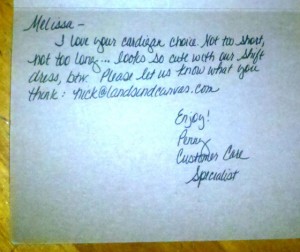 Melissa -
I love your cardigan choice. Not too short,
not too long... looks so cute with our shift
dress, btw. Please let us know what you
think: nick@landsendcanvas.com
Enjoy!
Penny
Customer Care
Specialist